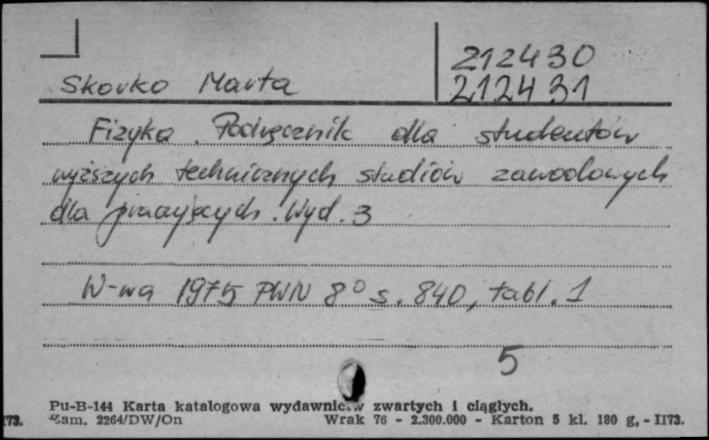 212430
Skorko Marta 212431
Fizyka. Podręcznik dla studentów
wyższych technicznych studiów zawodowych
dla pracujących. Wyd. 3
W-wa 1975 PWN 8° s. 840, tabl. 1
5
Pu-B-144 Karta katalogowa wydawnictw zwartych i ciągłych.
173. Zam. 2264/DW/On Wrak 76 - 2.300.000 - Karton 5 kl. 180 g, - II73.